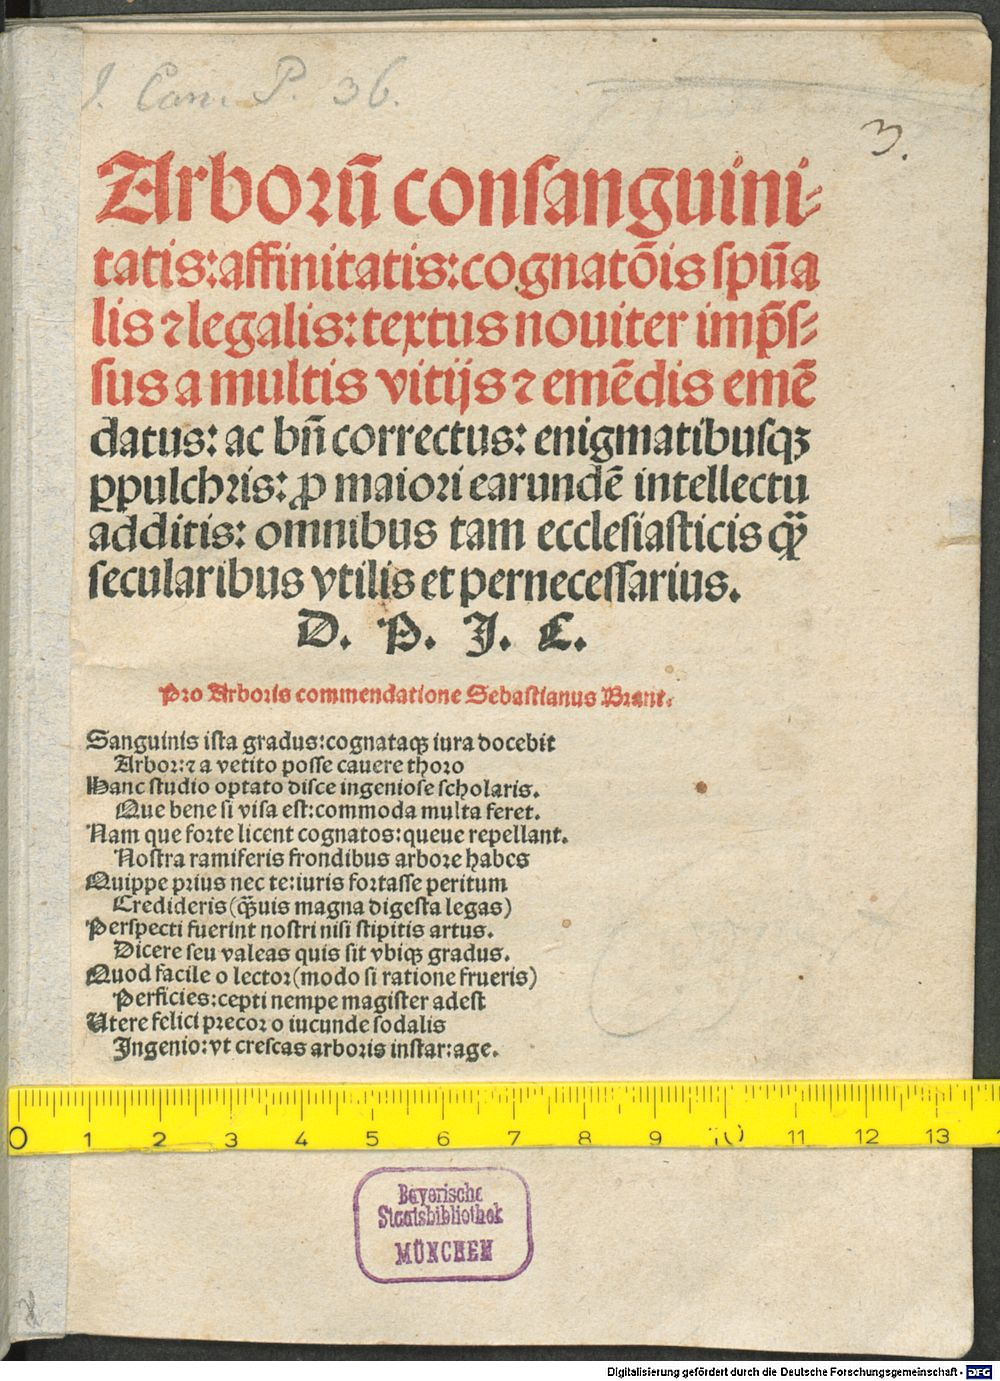 J. Can. P. 36.
3.
Arborū consanguini⸗
tatis: affinitatis: cognatōis spūa
lis ⁊ legalis: textus noviter imp̄s⸗
sus a multis vitijs ⁊ emēdis emē
datus: ac bn̄ correctus: enigmatibusqꝫ
ꝑpulchris: ꝓ maiori earundē intellectu
additis: omnibus tam ecclesiasticis qꝫ̈
secularibus vtilis et pernecessarius.
D. P. J. C.
Pro Arboris commendatione Sebastianus Brant.
Sanguinis ista gradus: cognataqꝫ iura docebit
Arbor: ⁊ a vetito posse cauere thoro
Hanc studio optato disce ingeniose scholaris.
Que bene si visa est: commoda multa feret.
Nam que forte licent cognatos: queue repellant.
Nostra ramiferis frondibus arbore habes
Quippe prius nec te: iuris fortasse peritum
Credideris (qꝫ̈uis magna digesta legas)
Perspecti fuerint nostri nisi stipitis artus.
Dicere seu valeas quis sit vbiqꝫ gradus.
Quod facile o lector (modo si ratione frueris)
Perficies: cepti nempe magister adest
Utere felici precor o iucunde sodalis
Ingenio: vt crescas arboris instar: age.
0 1 2 3 4 5 6 7 8 9 10 11 12 13
Bayerische
Staatsbibliothek
MÜNCHEN
Digitalisierung gefördert durch die Deutsche Forschungsgemeinschaft - DFG